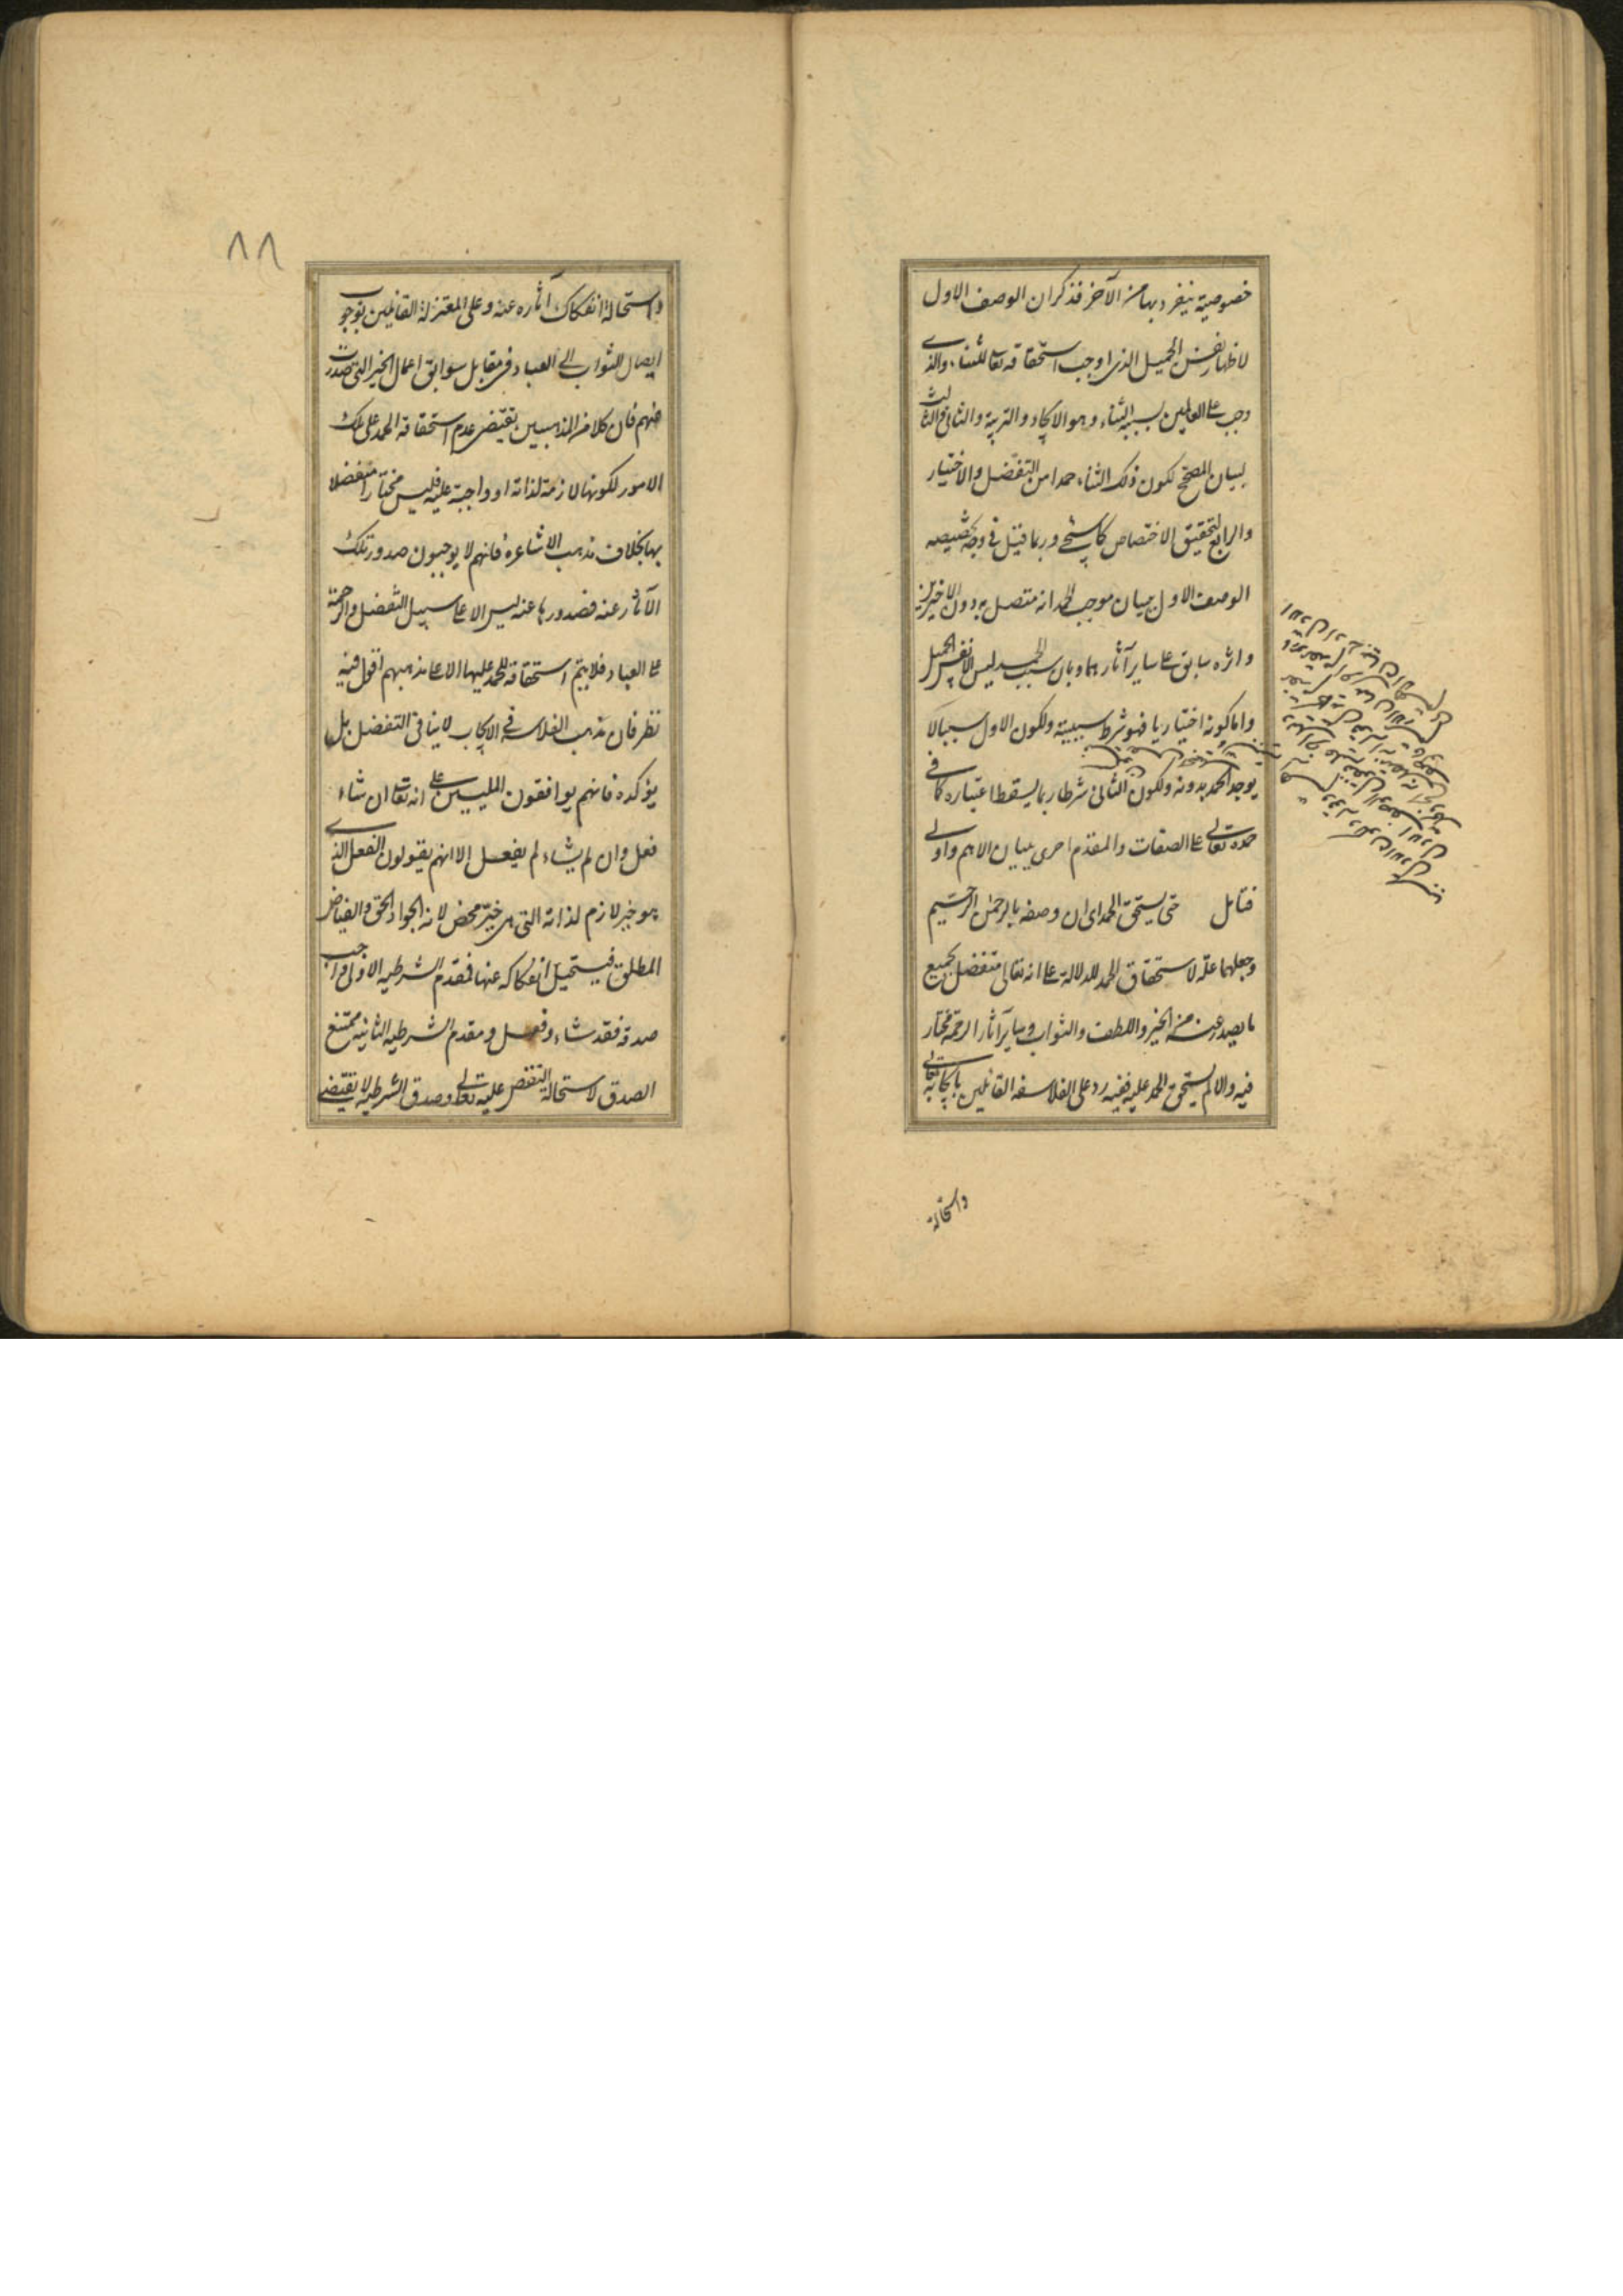 خصوصية ينفرد بها من الآخر فذكر ان الوصف الاول
لاظهار نفس الجميل الذى اوجب استحقاقه تعا للثناء والذى
وجب على العالمين بسببه الثناء وهو الايجاد والتربية والثانى والثالث
لبيان المصحح لكون ذلك الثناء حمدا من التفضل والاختيار
والرابع لتحقيق الاختصاص كما ستجئ وربما قيل فى وجه تخصيصه
الوصف الاول ببيان موجب الحمد انه متصل به دون الاخيرين
واثره سابق على ساير آثارهما وبان سبب الحمد ليس الا نفس الجميل
واما كونه اختياريا فهو شرط سببيته ولكون الاول سببا لا
يوجد الحمد بدونه ولكون الثانى شرطا ربما يسقط اعتباره كما فى
حمده تعالى على الصفات والمقدم احرى ببيان الاهم واولى
فتامل حتى يستحق الحمد اى ان وصفه بالرحمن الرحيم
وجعلهما علة لاستحقاق الحمد للدلالة على انه تعالى متفضل بجميع
ما يصدر عنه من الخير واللطف والثواب وساير آثار الرحمة مختار
فيه والا لم يستحق الحمد عليه ففيه رد على الفلاسفه القائلين بايجابه تعالى
واستحالة
واستحالة انفكاك آثاره عنه وعلى المعتزلة القائلين بوجوب
ايصال الثواب الى العباد فى مقابل سوابق اعمال الخير التى صدرت
منهم فان كلا من المذهبين يقتضى عدم استحقاقه الحمد على تلك
الامور لكونها لازمة لذاته او واجبة عليه فليس مختارا متفضلا
بها بخلاف مذهب الاشاعره فانهم لا يوجبون صدور تلك
الآثار عنه فصدورها عنه ليس الا على سبيل التفضل والرحمة
على العباد فلا يتم استحقاقه للحمد عليها الا على مذهبهم اقول فيه
نظر فان مذهب الفلاسفة فى الايجاب لا ينافى التفضل بل
يؤكده فانهم يوافقون المليين على انه تعا ان شاء
فعل وان لم يشاء لم يفعل الا انهم يقولون الفعل الذى
هو خير لازم لذاته التى هى خير محض لانه الجواد الحق والفياض
المطلق فيستحيل انفكاكه عنها فمقدم الشرطيه الاولى واجب
صدقه فقد شاء وفعل ومقدم الشرطيه الثانيه ممتنع
الصدق لاستحالة النقص عليه تعالى وصدق الشرطيه لا يقتضى
٨٨